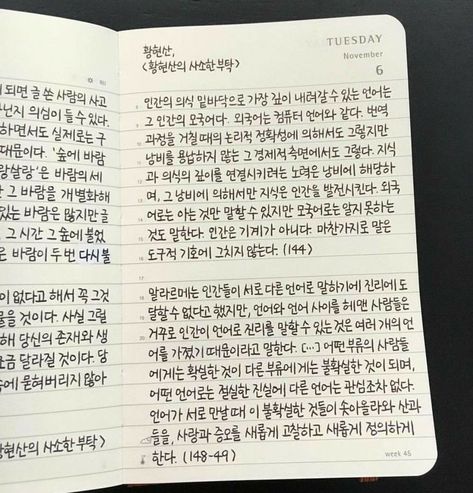 되면 글 쓴 사람의 사고
넌지 의심이 들 수 있다.
하면서도 실제로는 구
때문이다. '숲에 바람
랑살랑'은 바람의 세
그 바람을 개별화해
있는 바람은 많지만 글
그 시간 그 숲에 불었
바람이 두 번 다시 불
이 없다고 해서 꼭 그것
것이다. 사실 그럴
해 당신의 존재와 생
조금 달라질 것이다. 당
속에 묻혀버리지 않아
황현산의 사소한 부탁>
TUESDAY
November
6
황현산,
<황현산의 사소한 부탁>
인간의 의식 밑바닥으로 가장 깊이 내려갈 수 있는 언어는
그 인간의 모국어다. 외국어는 컴퓨터 언어와 같다. 번역
과정을 거칠 때의 논리적 정확성에 의해서도 그렇지만
낭비를 용납하지 않는 그 경제적 측면에서도 그렇다. 지식
과 의식의 깊이를 연결시키려는 노력은 낭비에 해당하
며, 그 낭비에 의해서만 지식은 인간을 발전시킨다. 외국
어로는 아는 것만 말할 수 있지만 모국어로는 알지 못하는
것도 말한다. 인간은 기계가 아니다. 마찬가지로 말은
도구적 기호에 그치지 않는다. (144)
말라르메는 인간들이 서로 다른 언어로 말하기에 진리에 도
달할 수 없다고 했지만, 언어와 언어 사이를 헤맨 사람들은
거꾸로 인간이 언어로 진리를 말할 수 있는 것은 여러 개의 언
어를 가졌기 때문이라고 말한다. [...] 어떤 부류의 사람들
에게는 확실한 것이 다른 부류에게는 불확실한 것이 되며,
어떤 언어로는 절실한 진실에 다른 언어는 관심조차 없다.
언어가 서로 만날 때 이 불확실한 것들이 솟아올라와 산과
들을, 사랑과 증오를 새롭게 고찰하고 새롭게 정의하게
한다. (148-49)
week 45